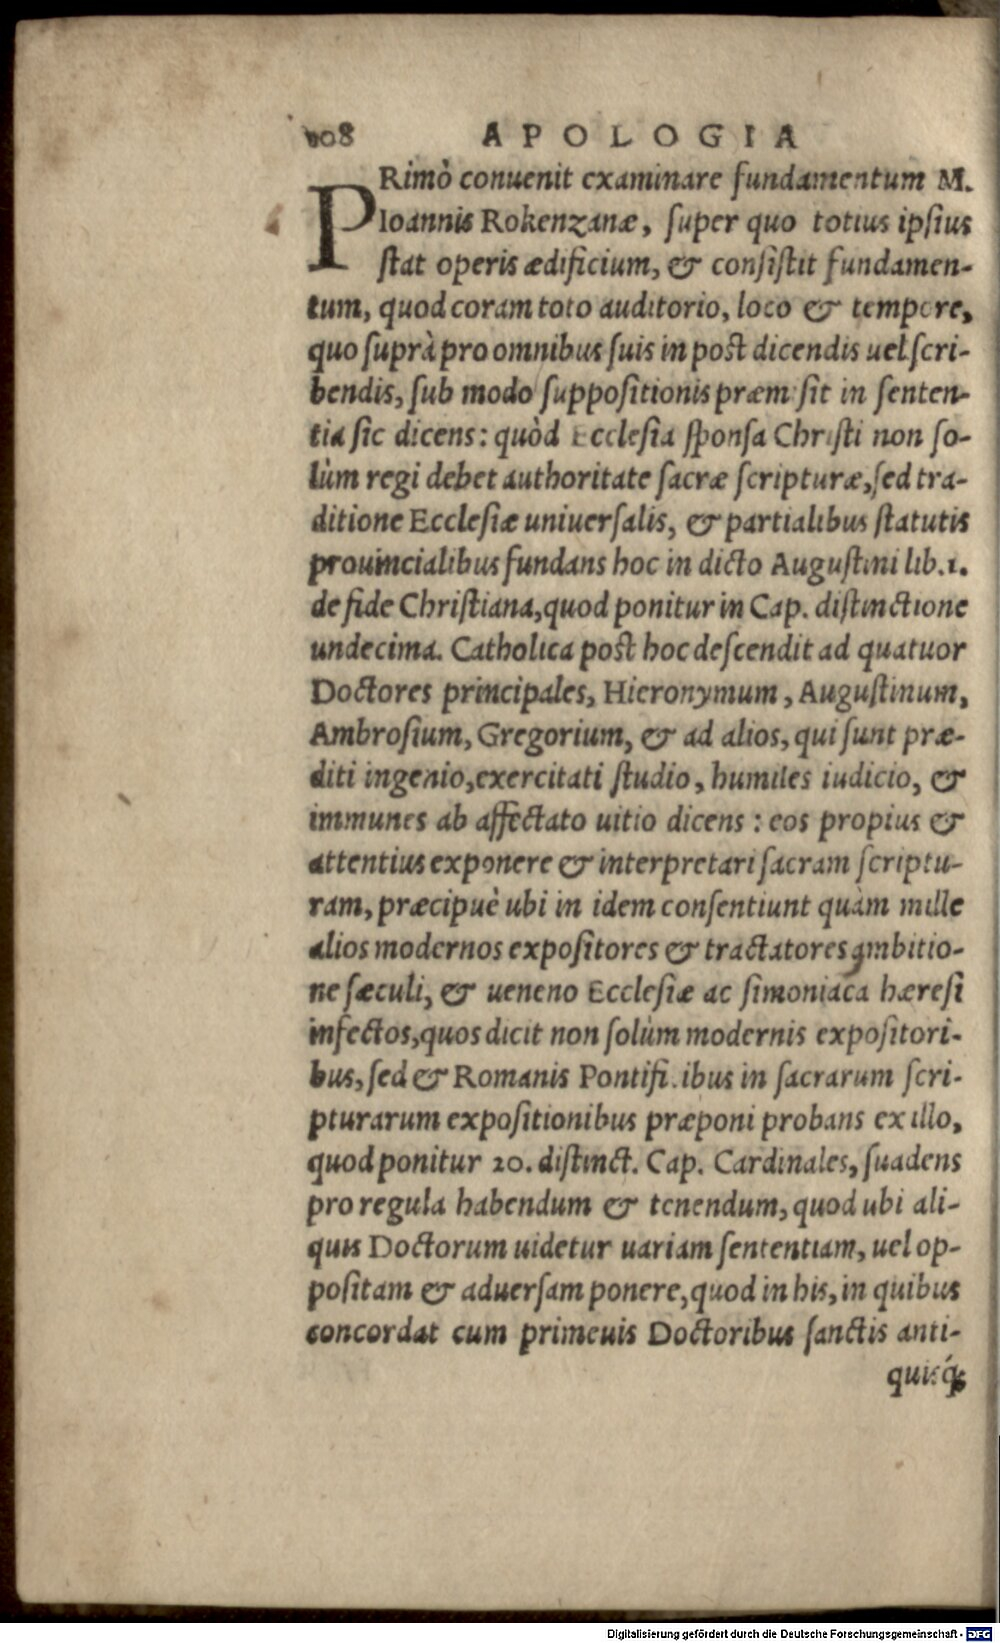 108 APOLOGIA
PRimò conuenit examinare fundamentum M.
Ioannis Rokenzanæ, ſuper quo totius ipſius
ſtat operis ædificium, & conſiſtit fundamen-
tum, quod coram toto auditorio, loco & tempore,
quo ſuprà pro omnibus ſuis in poſt dicendis uel ſcri-
bendis, ſub modo ſuppoſitionis præmiſit in ſenten-
tia ſic dicens: quòd Eccleſia ſponſa Chriſti non ſo-
lùm regi debet authoritate ſacræ ſcripturæ, ſed tra-
ditione Eccleſiæ uniuerſalis, & partialibus ſtatutis
prouincialibus fundans hoc in dicto Auguſtini lib. 1.
de fide Chriſtiana, quod ponitur in Cap. diſtinctione
undecima. Catholica poſt hoc deſcendit ad quatuor
Doctores principales, Hieronymum, Auguſtinum,
Ambroſium, Gregorium, & ad alios, qui ſunt præ-
diti ingenio, exercitati ſtudio, humiles iudicio, &
immunes ab affectato uitio dicens: eos propius &
attentius exponere & interpretari ſacram ſcriptu-
ram, præcipuè ubi in idem conſentiunt quàm mille
alios modernos expoſitores & tractatores ambitio-
ne ſæculi, & ueneno Eccleſiæ ac ſimoniaca hæreſi
infectos, quos dicit non ſolùm modernis expoſitori-
bus, ſed & Romanis Pontificibus in ſacrarum ſcri-
pturarum expoſitionibus præponi probans ex illo,
quod ponitur 20. diſtinct. Cap. Cardinales, ſuadens
pro regula habendum & tenendum, quod ubi ali-
quis Doctorum uidetur uariam ſententiam, uel op-
poſitam & aduerſam ponere, quod in his, in quibus
concordat cum primeuis Doctoribus ſanctis anti-
quisq́;
Digitalisierung gefördert durch die Deutsche Forschungsgemeinschaft - DFG